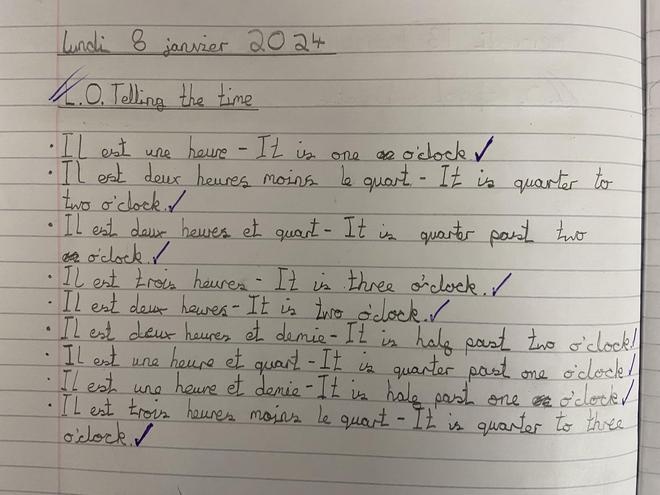 lundi 8 janvier 2024
L.O. Telling the time
• Il est une heure - It is one o'clock
• Il est deux heures moins le quart - It is quarter to
two o'clock.
• Il est deux heures et quart - It is quarter past two
o'clock.
• Il est trois heures - It is three o'clock.
• Il est deux heures - It is two o'clock.
• Il est deux heures et demie - It is half past two o'clock.
• Il est une heure et quart - It is quarter past one o'clock.
• Il est une heure et demie - It is half past one o'clock.
• Il est trois heures moins le quart - It is quarter to three
o'clock.